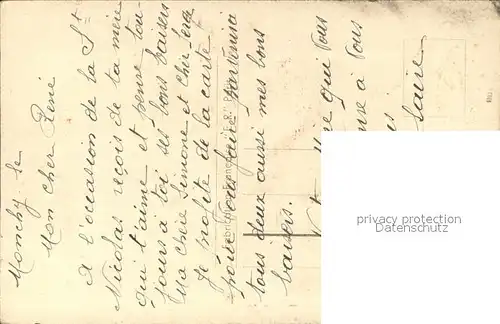 Monchy le
Mon cher René
A l'occasion de la St
Nicolas reçois de ta mère
qui t'aime et pense tou-
jours à toi ses bons baisers
Ma chère Simone et cher
Je profite de la carte
pour vous faire parvenir
tous deux aussi mes bons
baisers.
qui vous
à vous
privacy protection
www.delcampe.net